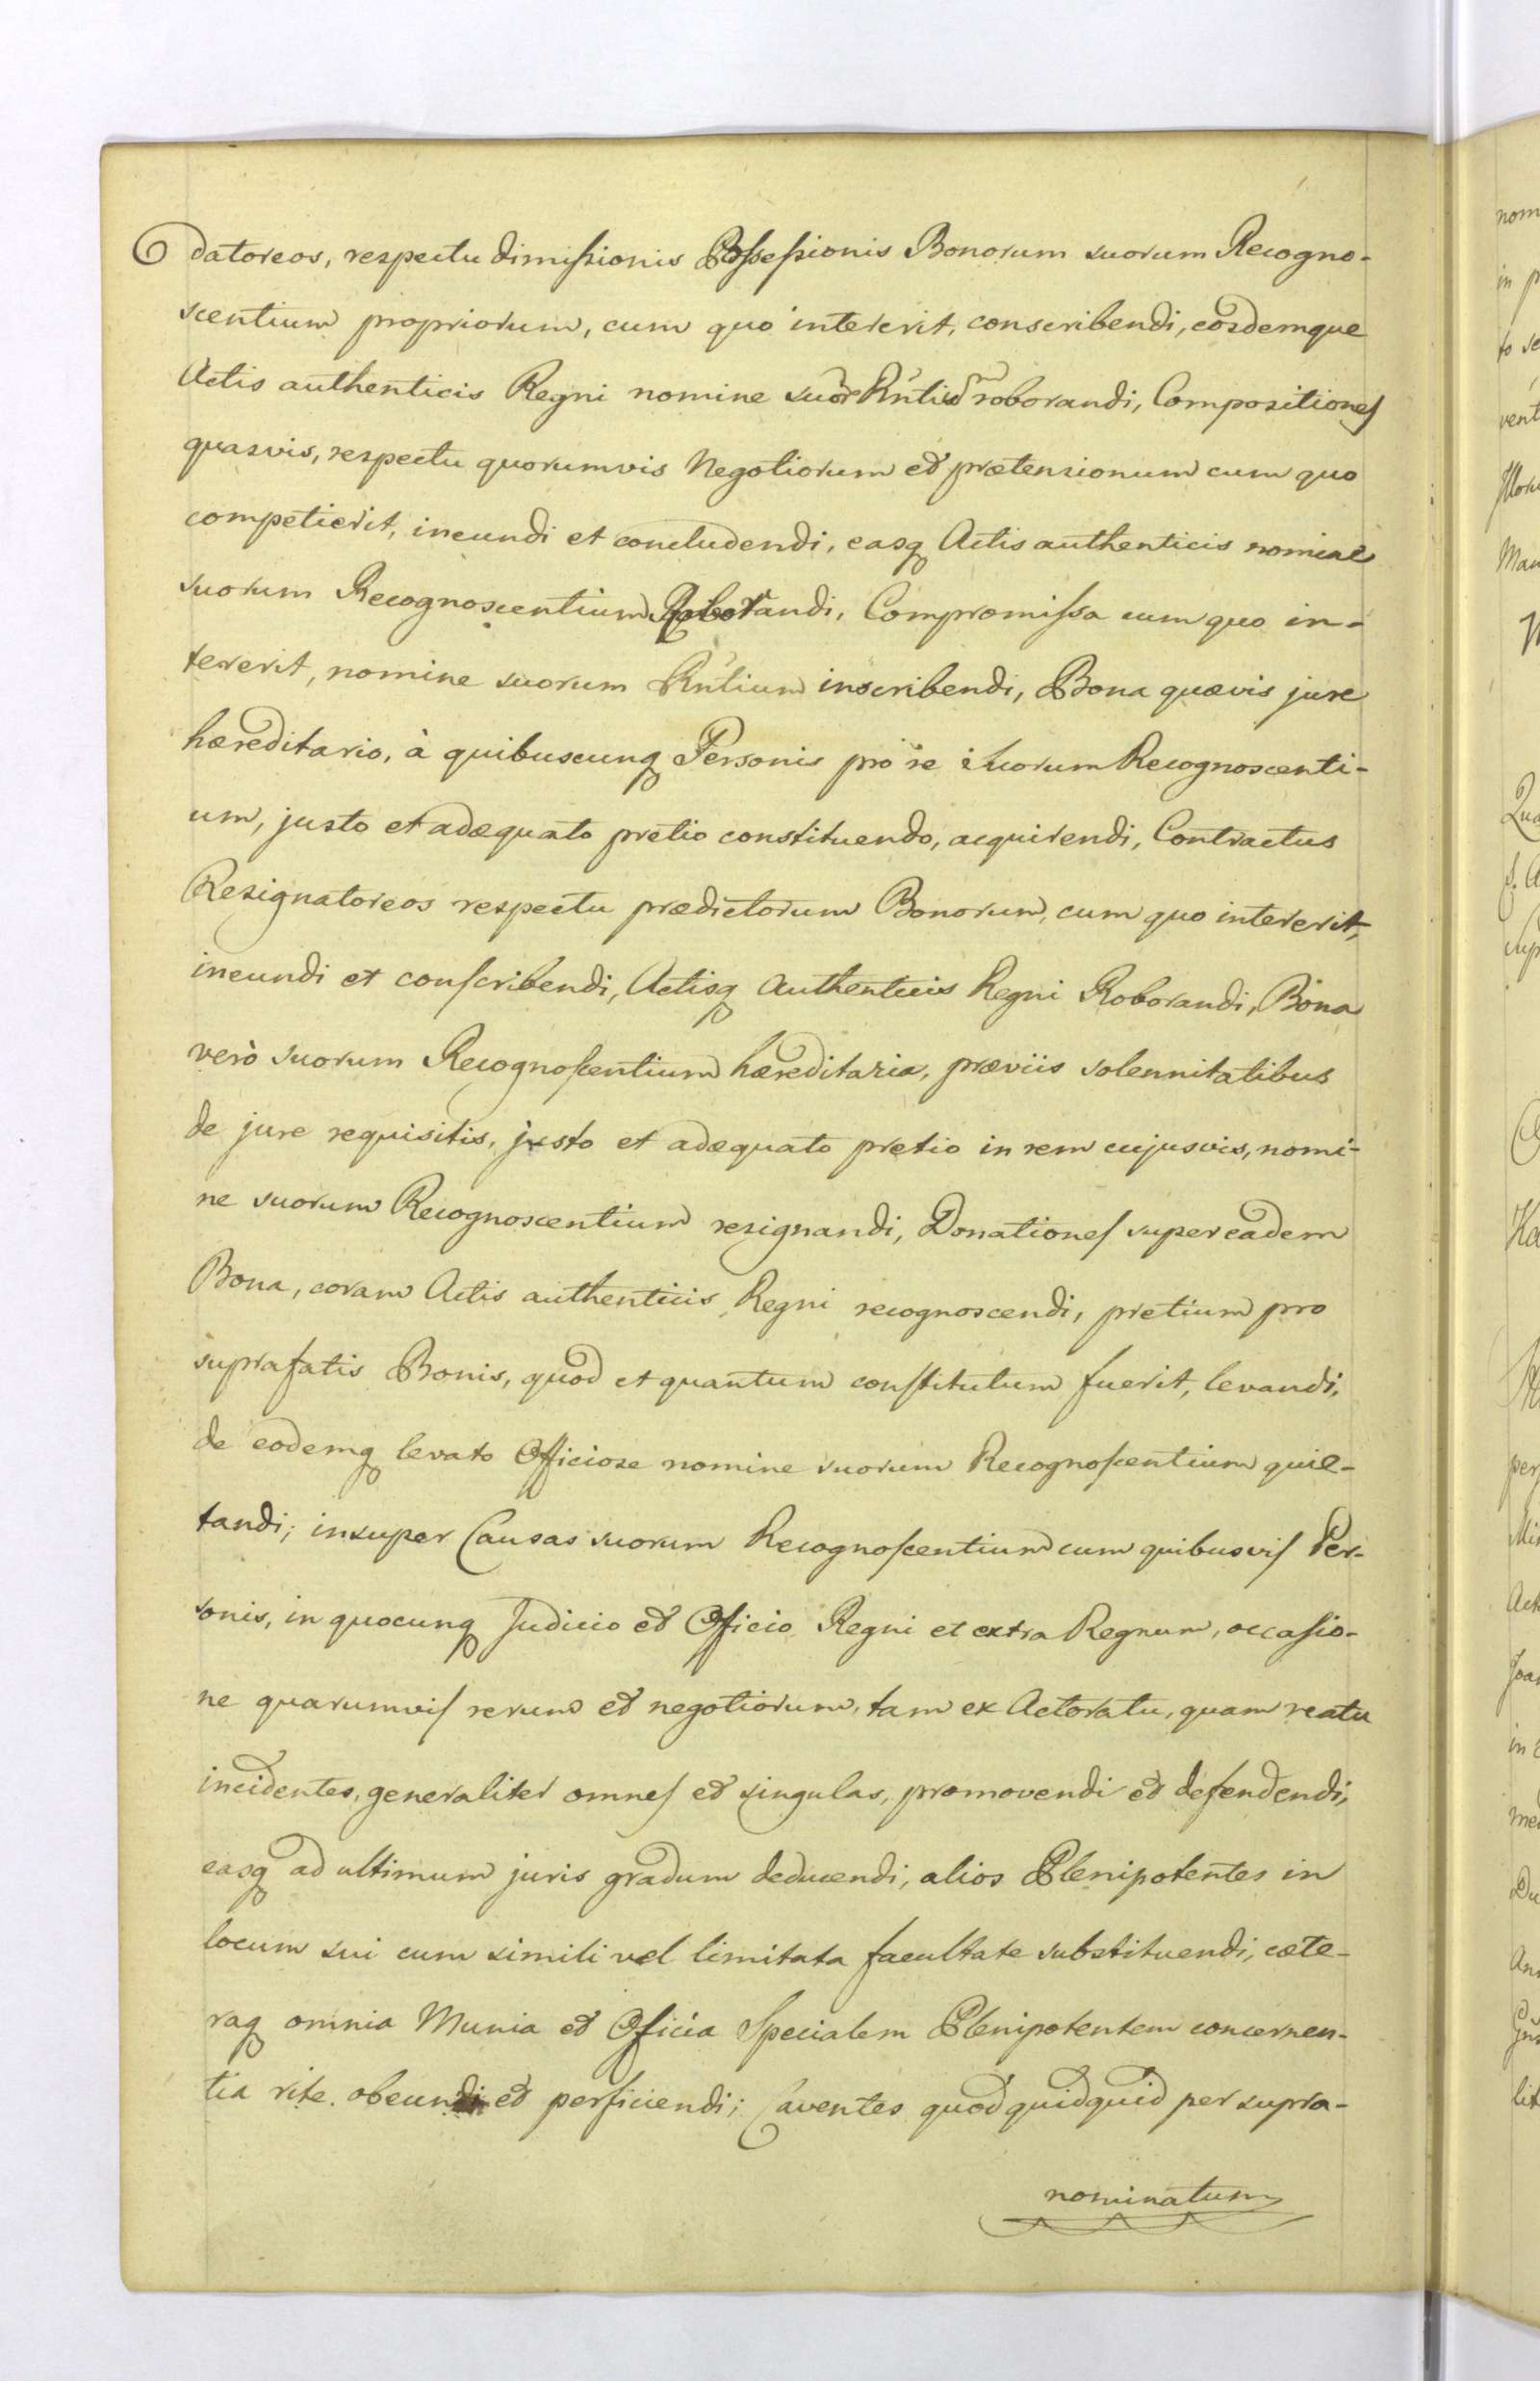 datoreos, respectu dimiſsionis Poſseſsionis Bonorum suorum Recogno-
scentium propriorum, cum quo intererit, conscribendi, eosdemque
Actis authenticis Regni nomine suor Rntium roborandi, Compositiones
quasvis, respectu quorumvis Negotiorum et prætensionum cum quo
competierit, ineundi et concludendi, easq Actis authenticis nomine
suorum Recognoscentium Roborandi, Compromiſsa cum quo in-
tererit, nomine suorum Rntium inscribendi, Bona quævis jure
hæreditario, à quibuscunq Personis pro re suorum Recognoscenti-
um, justo et adæquato pretio constituendo, acquirendi, Contractus
Resignatoreos respectu prædictorum Bonorum, cum quo intererit,
ineundi et conſcribendi, Actisq Authenticis Regni Roborandi, Bona
verò suorum Recognoſcentium hæreditaria, præviis solennitatibus
de jure requisitis, justo et adæquato pretio in rem cujusvis, nomi-
ne suorum Recognoscentium resignandi, Donationeſ super eadem
Bona, coram Actis authenticis Regni recognoscendi, pretium pro
suprafatis Bonis, quod et quantum conſtitutum fuerit, levandi,
de eodemq levato Officiose nomine suorum Recognoſcentium quie-
tandi; insuper Causas suorum Recognoſcentium cum quibusviſ Per-
sonis, in quocunq Judicio et Officio Regni et extra Regnum, occaſio-
ne quarumviſ rerum et negotiorum, tam ex Actoratu, quam reatu
incidentes, generaliter omneſ et singulas, promovendi et defendendi,
easq ad ultimum juris gradum deducendi, alios Plenipotentes in
locum sui cum simili vel limitata facultate substituendi, cæte-
raq omnia Munia et Officia Specialem Plenipotentem concernen-
tia rite obeundi et perficiendi; Caventes quod quidquid per supra-
nominatum